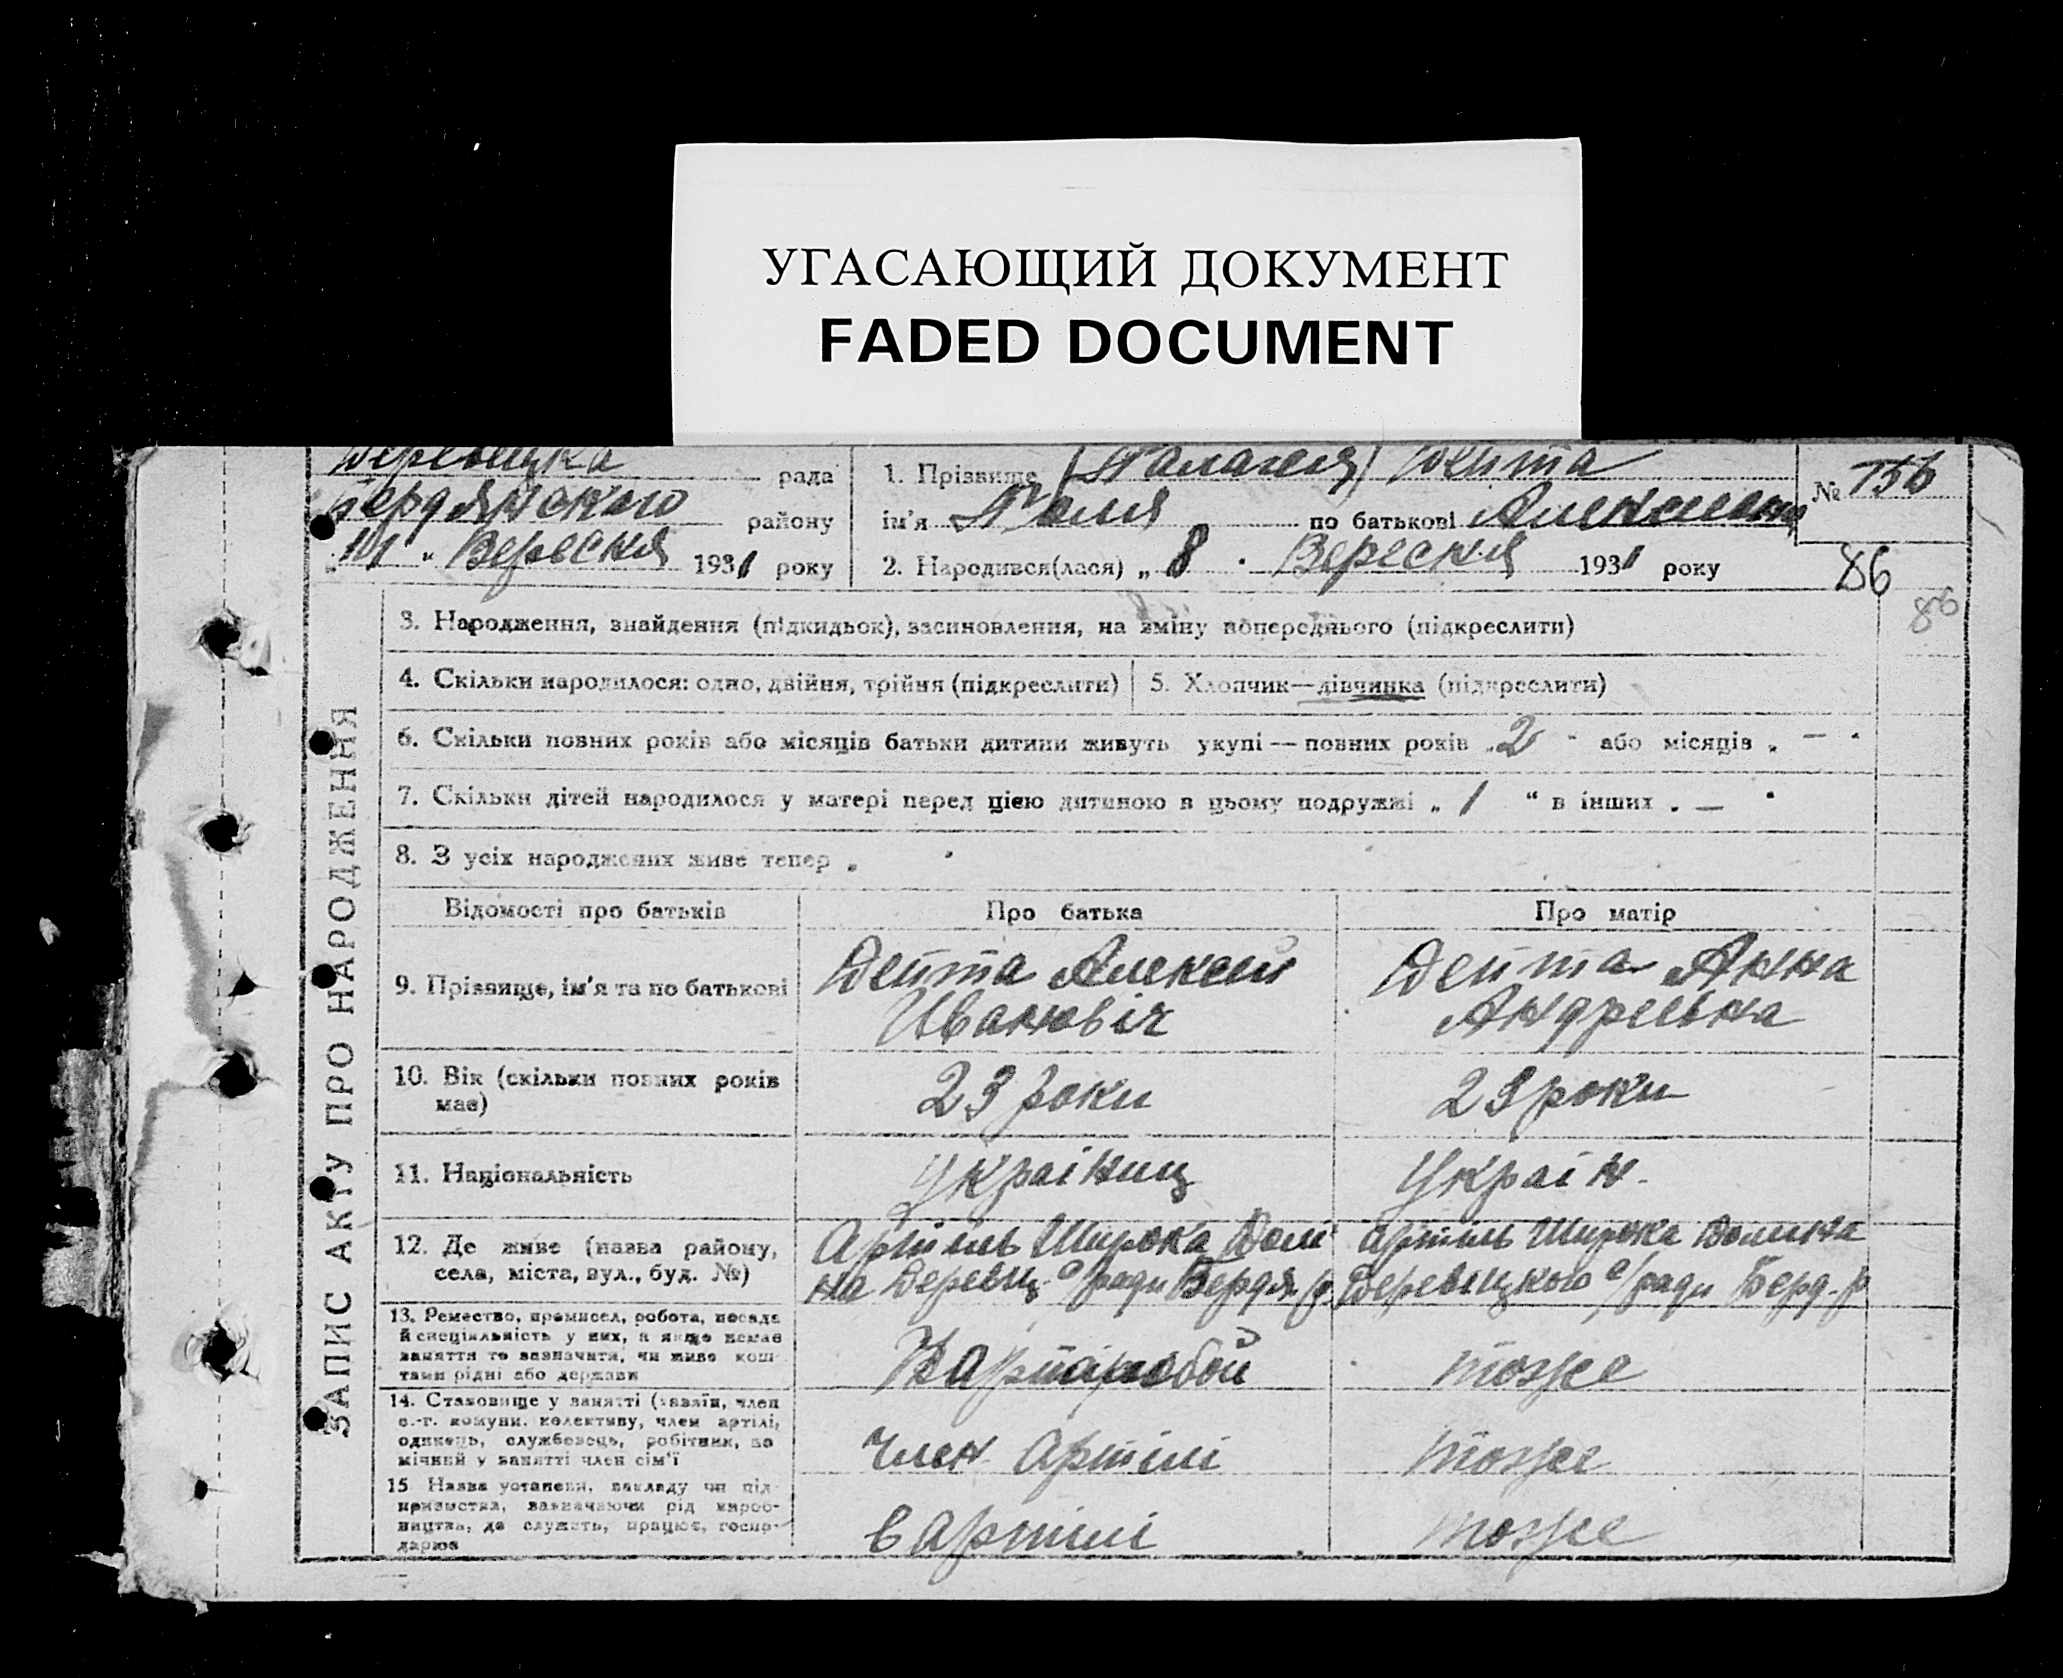 УГАСАЮЩИЙ ДОКУМЕНТ
FADED DOCUMENT
Деревицка рада
Бердянского району
1931 року
Вересня
1. Прізвище (Палагея) Дейта
ім'я Поля по батькові
2. Народився(лася) „ 8 . Вересня 1931 року
№ 156
86
86
ЗАПИС АКТУ ПРО НАРОДЖЕННЯ
3. Народження, знайдення (підкидьок), засиновлення, на зміну попереднього (підкреслити)
4. Скільки народилося: одно, двійня, трійня (підкреслити)
5. Хлопчик—дівчинка (підкреслити)
6. Скільки повних років або місяців батьки дитини живуть укупі — повних років „ 2 “ або місяців „ — “
7. Скільки дітей народилося у матері перед цією дитиною в цьому подружжі „ 1 “ в інших „ — “
8. З усіх народжених живе тепер „
Відомості про батьків
Про батька
Про матір
9. Прізвище, ім'я та по батькові
Дейта Алексей
Ивановіч
Дейта Анна
Андреевна
10. Вік (скільки повних років
має)
23 роки
23 роки
11. Національність
Україниц
Україн.
12. Де живе (назва району,
села, міста, вул., буд. №)
Артіль Широка Доли
на Деревиц. с/ради Бердян. р.
Артіль Широка Долина
Деревицкого с/ради Берд. р
13. Ремество, промисел, робота, посада
й спеціяльність у них, а якщо немає
заняття то зазначити, чи живе кош-
тами рідні або держави
тоже
14. Становище у занятті (хазяїн, член
с.-г. комуни, колективу, член артілі,
одинець, службовець, робітник, по
мічний у занятті член сім'ї
Член Артілі
тоже
15 Назва установи, закладу чи під-
приємства, зазначаючи рід вироб-
ництва, де служить, працює, госпо-
дарює
в артілі
тоже